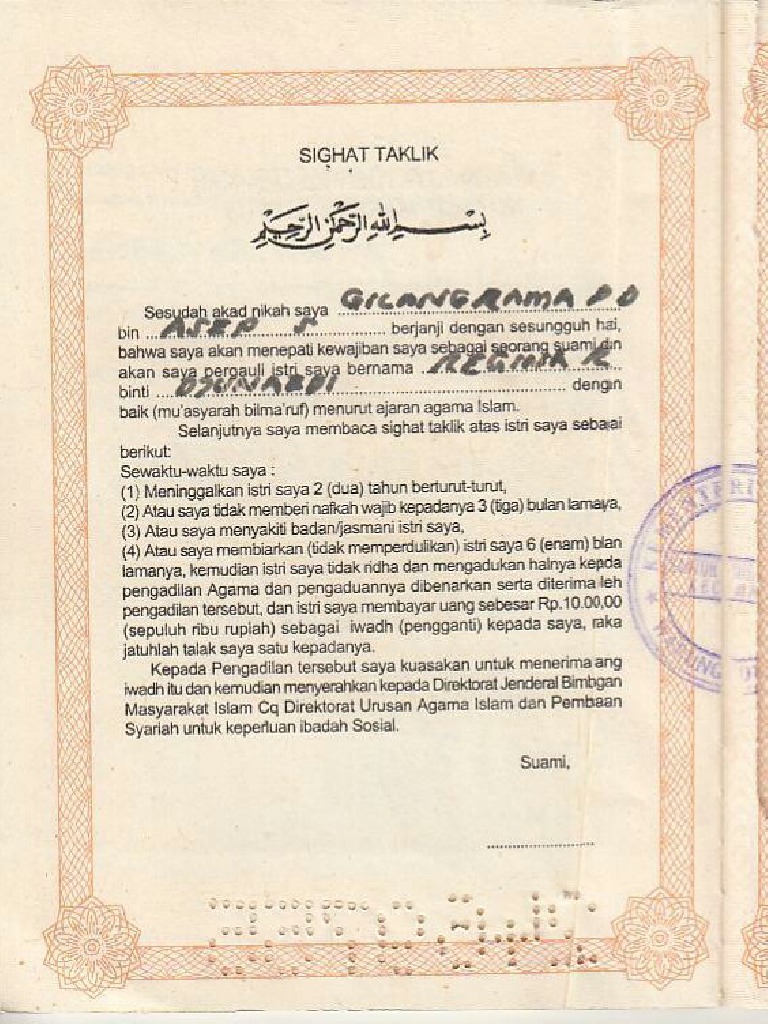 SIGHAT TAKLIK
بِسْمِ اللهِ الرَّحْمٰنِ الرَّحِيْمِ
Sesudah akad nikah saya GILANG RAMA P D
bin ASEP S berjanji dengan sesungguh hai,
bahwa saya akan menepati kewajiban saya sebagai seorang suami din
akan saya pergauli istri saya bernama
binti dengin
baik (mu'asyarah bilma'ruf) menurut ajaran agama Islam.
Selanjutnya saya membaca sighat taklik atas istri saya sebaiai
berikut:
Sewaktu-waktu saya :
(1) Meninggalkan istri saya 2 (dua) tahun berturut-turut,
(2) Atau saya tidak memberi nafkah wajib kepadanya 3 (tiga) bulan lamaya,
(3) Atau saya menyakiti badan/jasmani istri saya,
(4) Atau saya membiarkan (tidak memperdulikan) istri saya 6 (enam) blan
lamanya, kemudian istri saya tidak ridha dan mengadukan halnya kepda
pengadilan Agama dan pengaduannya dibenarkan serta diterima leh
pengadilan tersebut, dan istri saya membayar uang sebesar Rp.10.00,00
(sepuluh ribu rupiah) sebagai iwadh (pengganti) kepada saya, raka
jatuhlah talak saya satu kepadanya.
Kepada Pengadilan tersebut saya kuasakan untuk menerima ang
iwadh itu dan kemudian menyerahkan kepada Direktorat Jenderal Bimbgan
Masyarakat Islam Cq Direktorat Urusan Agama Islam dan Pembaan
Syariah untuk keperluan ibadah Sosial.
Suami,